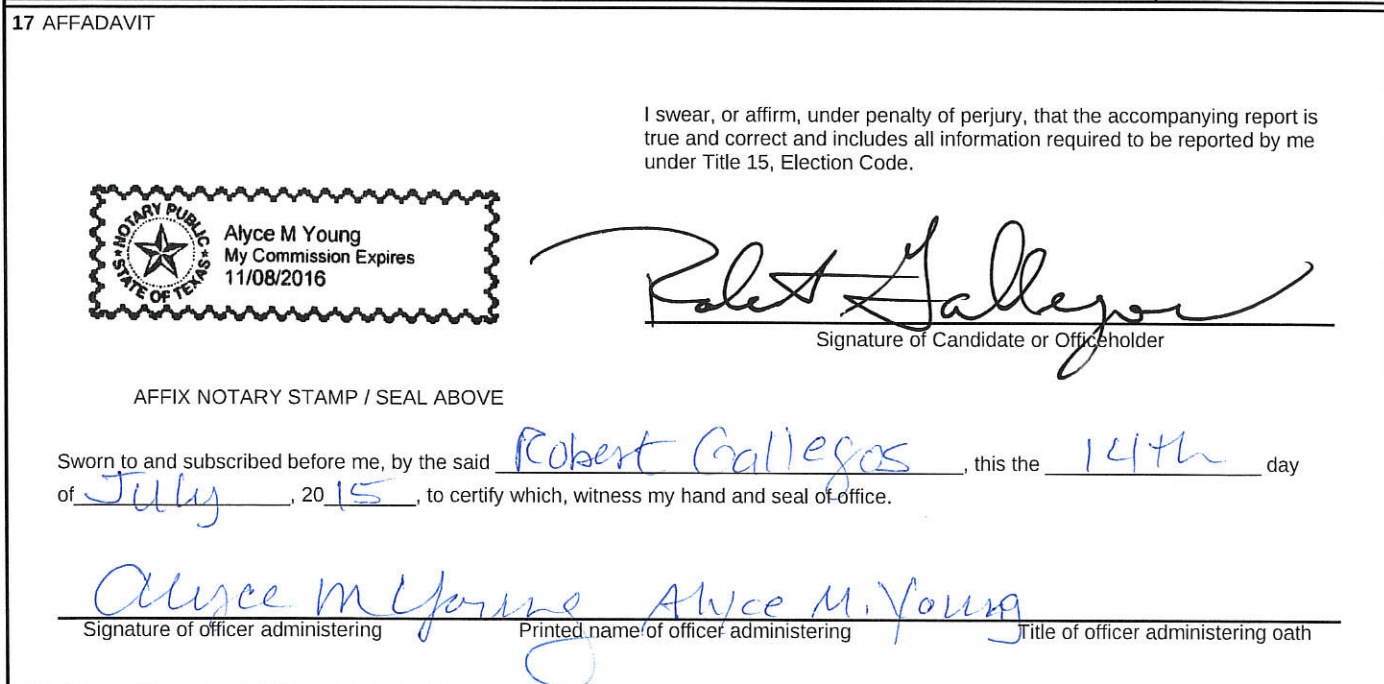 17 AFFADAVIT
I swear, or affirm, under penalty of perjury, that the accompanying report is
true and correct and includes all information required to be reported by me
under Title 15, Election Code.
NOTARY PUBLIC
STATE OF TEXAS
Alyce M Young
My Commission Expires
11/08/2016
Robert Gallegos
Signature of Candidate or Officeholder
AFFIX NOTARY STAMP / SEAL ABOVE
Sworn to and subscribed before me, by the said Robert Gallegos, this the 14th day
of July, 20 15, to certify which, witness my hand and seal of office.
Alyce M Young Alyce M. Young
Signature of officer administering Printed name of officer administering Title of officer administering oath